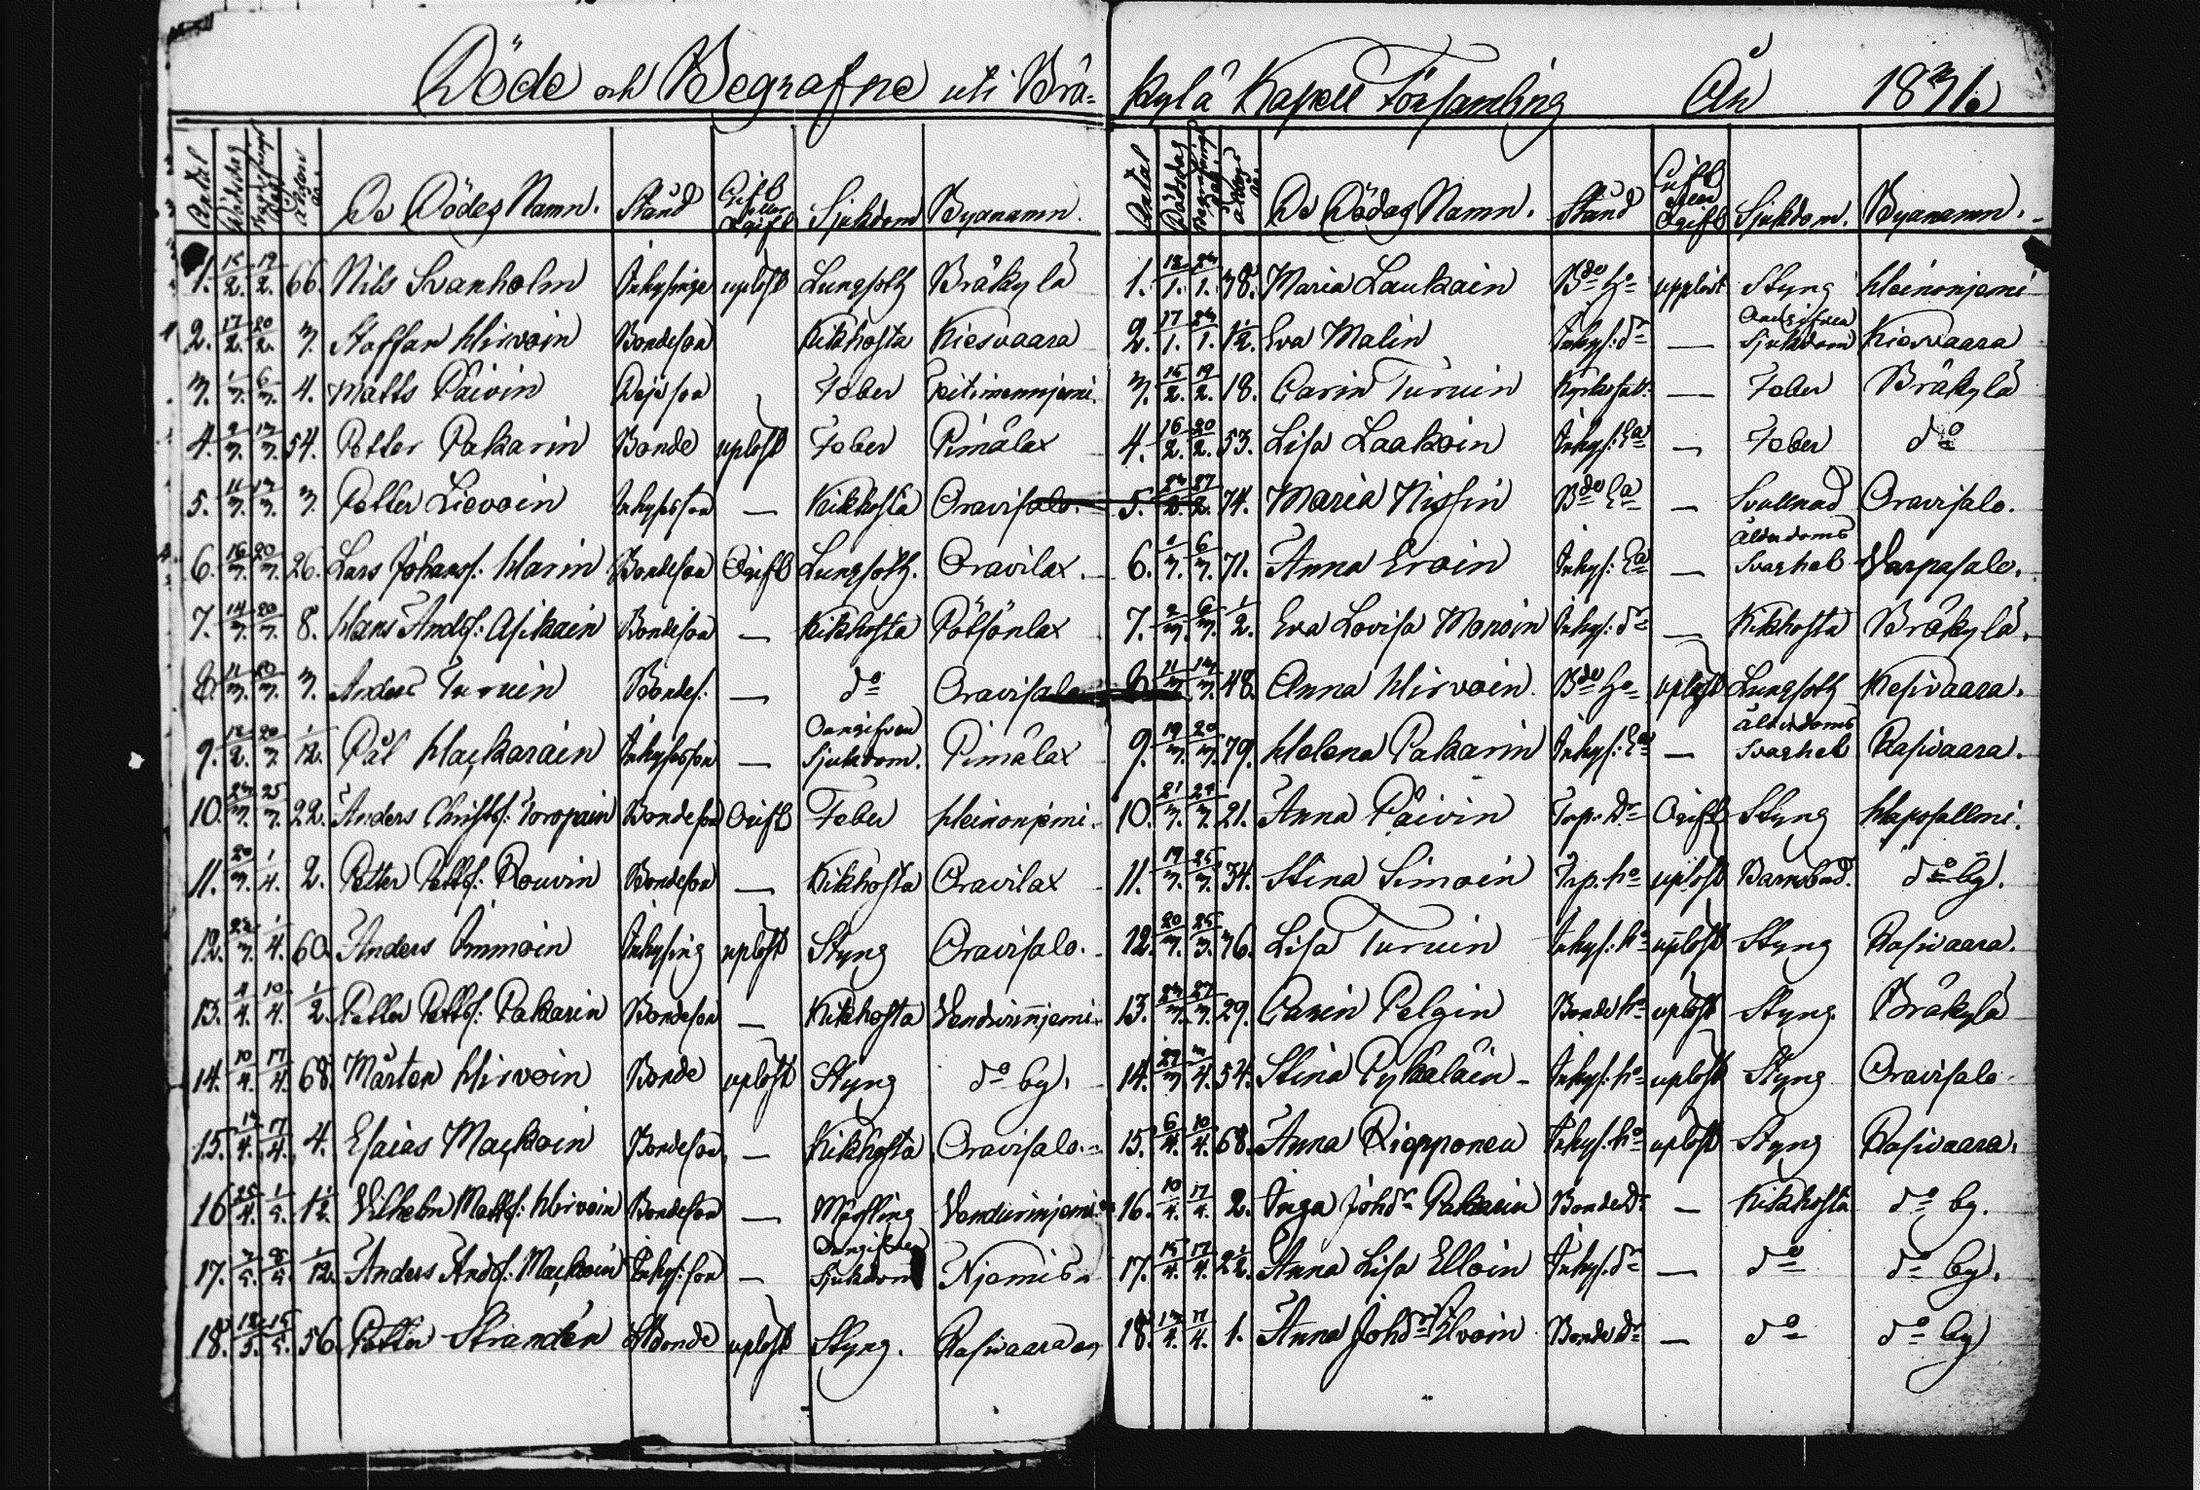 Döde och Begrafne uti Brå=
Antal Dödsdag Begrafnings Dag Ålder åa. De Dödes Namn. Stånd Gift eller Ogift Sjukdom Byanamn.
1. 15/2. 19/2. 66. Nils Svanholm Inhysinge uplöst Lungsoth Bråkylå
2. 17/2. 20/2. 3. Staffan Hirvoin Bondeson Kikhosta Kiesvaara
3. 1/3. 6/3. 4. Matts Päivin Dejeson Feber
4. 9/3. 13/3. 54. Petter Pakarin Bonde uplöst Feber Pimålax
5. 11/3. 13/3. 3. Petter Lievoin Inhysson — Kikhosta Oravisalo.
6. 16/3. 20/3. 26. Lars Johanss: Harin Bondeson Ogift Lungsoth. Oravilax.
7. 14/3. 20/3. 8. Hans Andss: Asikain Bondeson — Kikhosta Pötsönlax
8. 11/3. 20/3. 3. Anders Turuin Bondes: — do Oravisalo
9. 18/2. 20/3. 1/12. Pål Hackarain Inhysson — Oangifven Sjukdom. Pimålax
10. 23/3. 25/3. 22. Anders Christss: Toropain Bondeson Ogift Feber Heinonjemi.
11. 20/3. 1/4. 2. Petter Pettss: Rouvin Bondeson — Kikhosta Oravilax
12. 1/4. 60. Anders Immoin Inhysing uplöst Styng Oravisalo.
13. 4/4. 10/4. 1/2. Petter Pettss: Pakarin Bondeson — Kikhosta
14. 10/4. 17/4. 68. Mårten Hirvoin Bonde uplöst Styng do by.
15. 13/4. 17/4. 4. Esaias Mackoin Bondeson — Kikhosta Oravisalo.
16 25/4. 1/5. 1 1/2. Vilhelm Mattss: Hirvoin Bondeson — Mässling
17. 8/5. 1/12. Anders Andss: Mackoin Inhys: son — Oangifven Sjukdom
18. 15/5. 56. Petter Strandén Bonde uplöst Styng. Rasivaara
kylå Kapell Församling År 1831.
Antal Dödsdag Begrafnings Dag Ålder åa. De Dödas Namn. Stånd Gift eller Ogift Sjukdom. Byanamn.
1. 18/1. 23/1. 38. Maria Laukain Bde Ho upplöst Styng Heinonjemi
2. 17/1. 23/1. 1 1/2. Eva Malin Inhys: dr — Oangifven Sjukdom Kiesvaara
3. 15/2. 19/2. 18. Carin Turuin — Feber Bråkylå
4. 16/2. 20/2. 53. Lisa Laakoin Inhys: Ea — Feber do
5. 23/2. 27/2. 74. Maria Nissin Bde Ea — Svullnad Oravisalo.
6. 1/3. 6/3. 71. Anna Eroin Inhys: Ea — Ålderdoms Svaghet Varpasalo.
7. 2/3. 6/3. 1/2. Eva Lovisa Monoin Inhys: dr — Kikhosta Bråkylå.
8. 11/3. 13/3. 48. Anna Hirvoin. Bde Ho uplöst Lungsoth Kesivaara.
9. 19/3. 20/3. 79. Helena Pakarin Inhys: Ea — Ålderdoms Svaghet Rasivaara.
10. 21/3. 24/3. 21. Anna Päivin Torp. Dr Ogift Styng Haposallmi.
11. 19/3. 25/3. 34. Stina Simoin Torp. ho uplöst Barnsbörd. do by.
12. 20/3. 25/3. 36. Lisa Turuin Inhys: ho uplöst Styng Rasivaara.
13. 23/3. 27/3. 29. Carin Pelgin Bonde ho uplöst Styng Bråkylå
14. 27/3 3/4. 54. Stina Pykäläin Inhys: ho uplöst Styng Oravisalo
15. 6/4. 10/4. 68. Anna Riepponen Inhys: ho uplöst Styng Rasivaara.
16. 10/4. 17/4. 2. Inga Johdr Pakarin Bonde dr — Kikhosta do by.
17. 15/4. 17/4. 2 1/2. Anna Lisa Elloin Inhys. dr — do do by.
18. 13/4. 17/4. 1. Anna Johdr Ilvoin Bonde dr — do do by